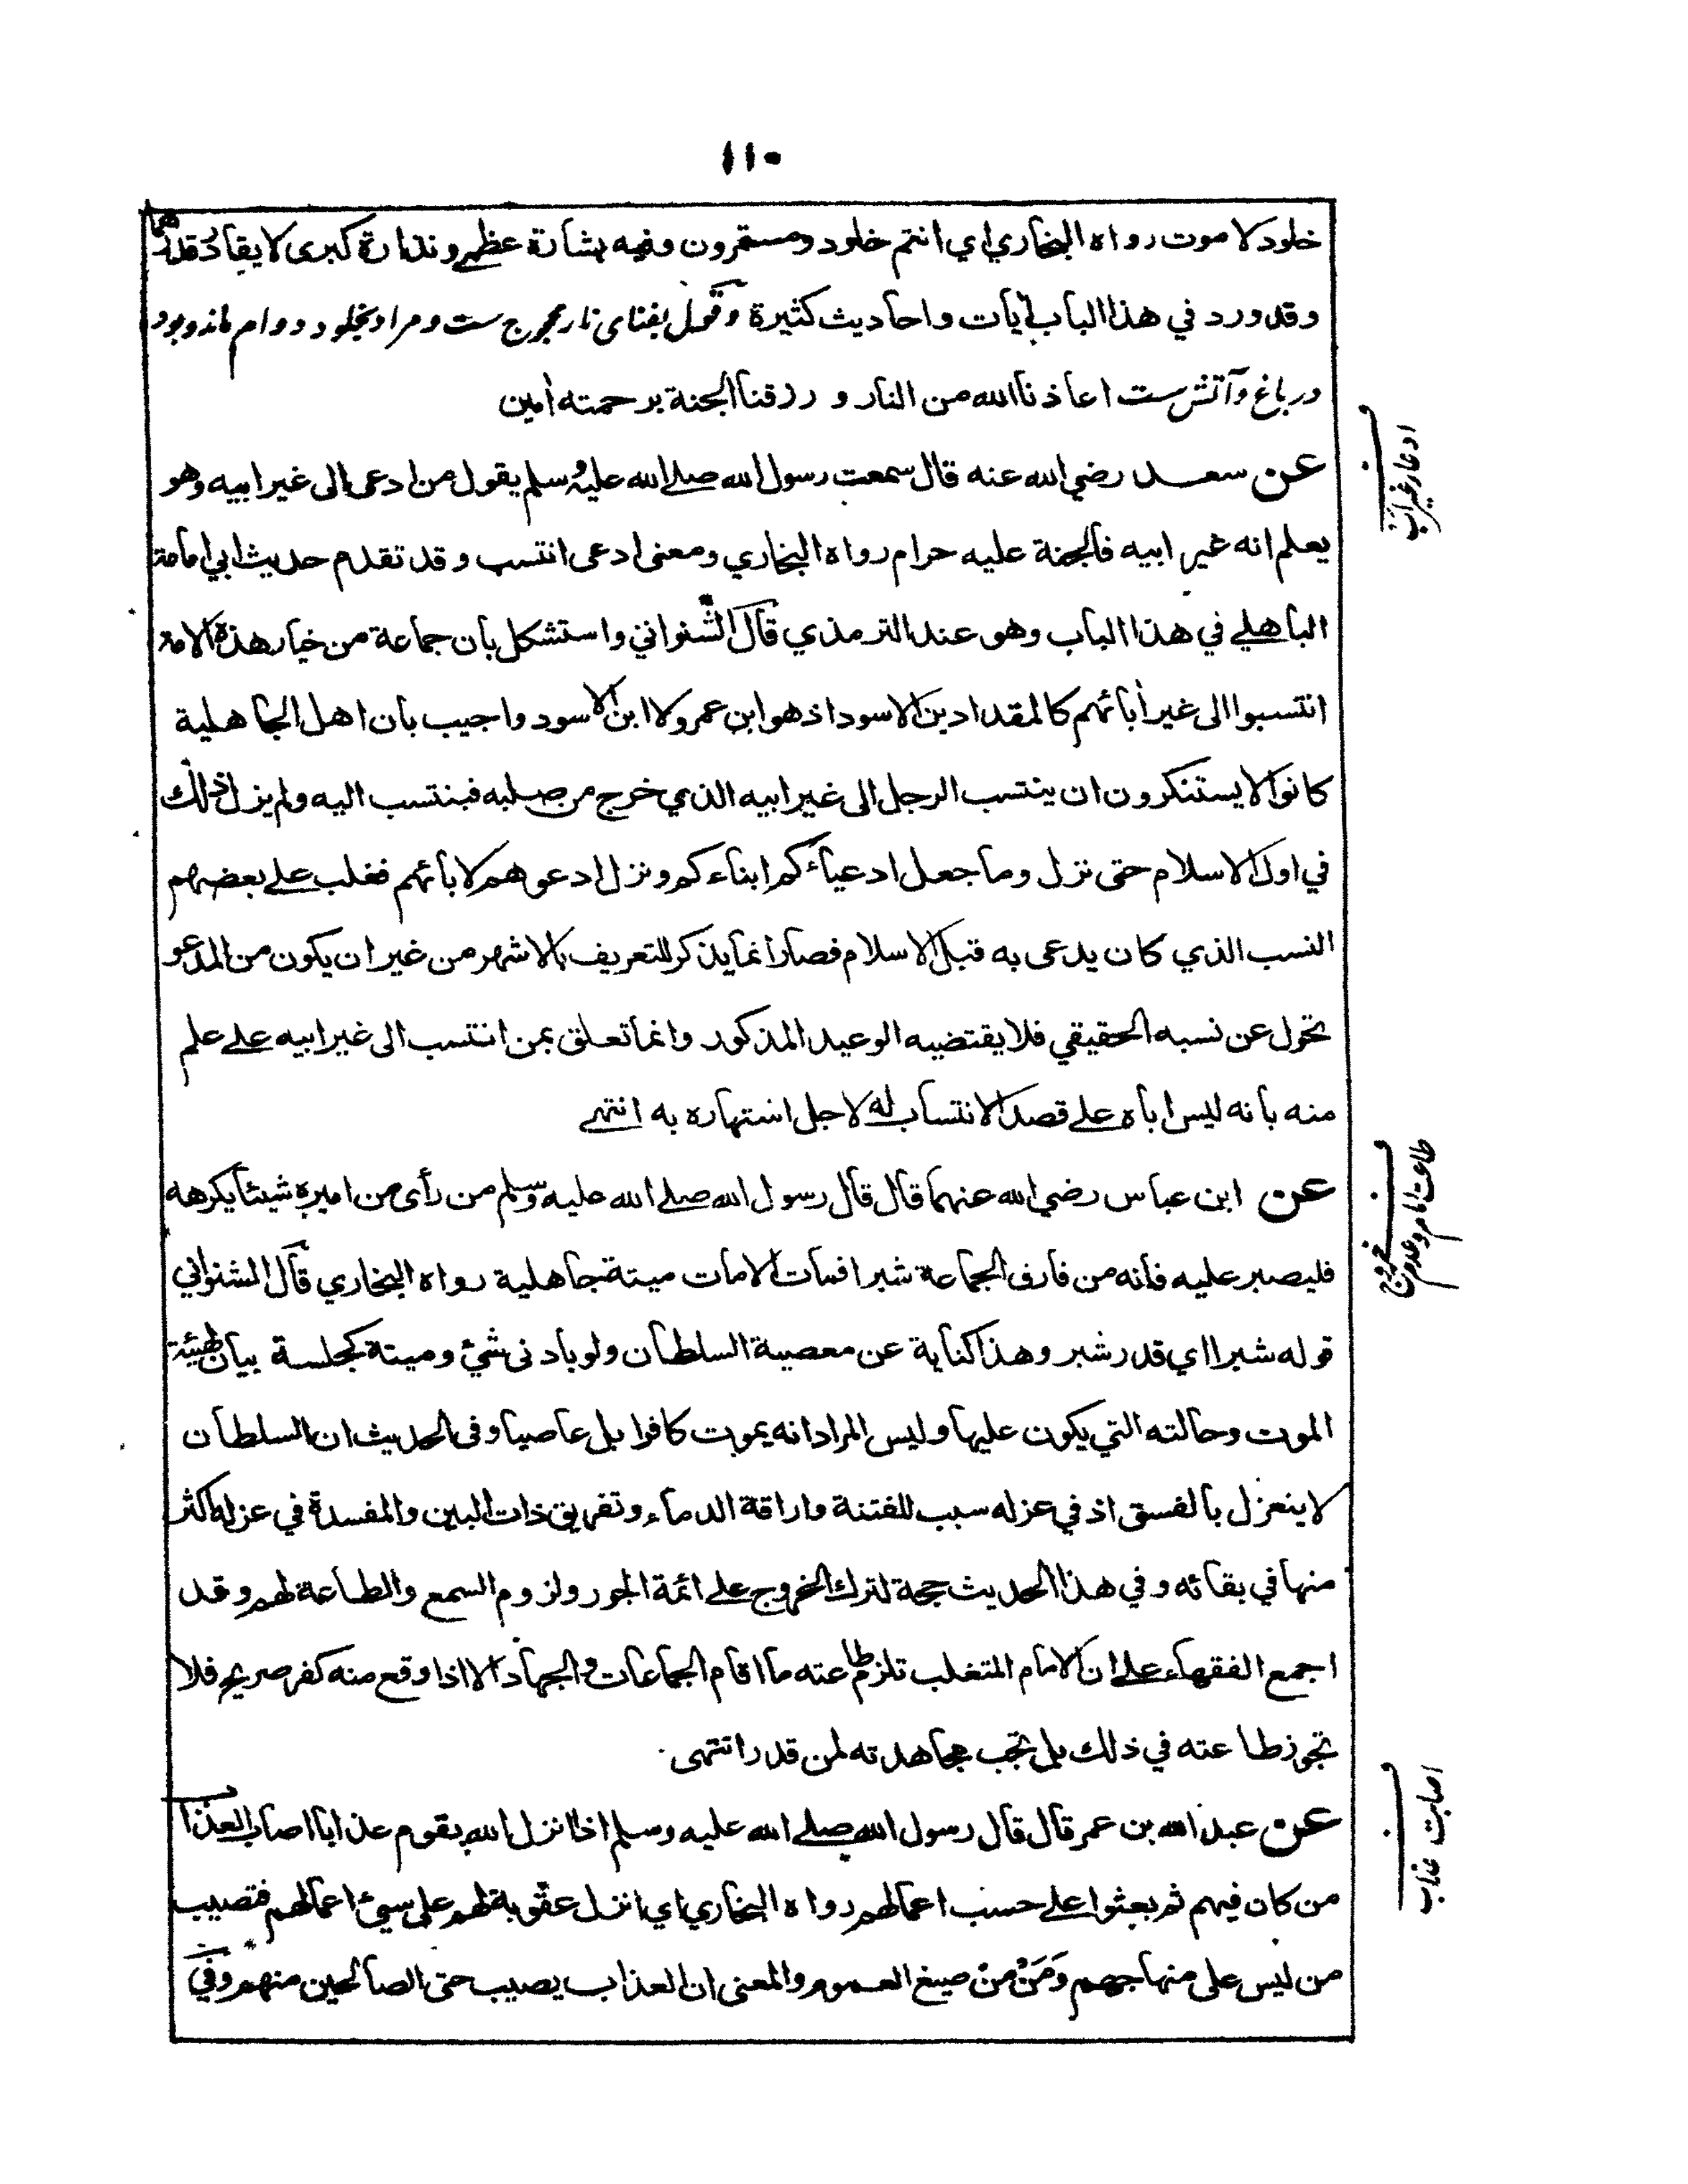 ١١٠
خلود لا موت رواه البخاري اي انتم خلود ومستمرون وفيه بشارة عظمى ونذارة كبرى لا يقادر قدرهما
وقد ورد في هذا الباب آيات واحاديث كثيرة وقول بفناى نار مرجوح ست ومراد بخلود دوام ماند وبود
در باغ وآتش ست اعاذنا الله من النار و رزقنا الجنة برحمته أمين
عن سعد رضي الله عنه قال سمعت رسول الله صلے الله عليه وسلم يقول من ادعى الى غير ابيه وهو
يعلم انه غير ابيه فالجنة عليه حرام رواه البخاري ومعنى ادعى انتسب وقد تقدم حديث ابي امامة
الباهلے في هذا الباب وهو عند الترمذي قال الشنواني واستشكل بان جماعة من خيار هذه الامة
انتسبوا الى غير أبائهم كالمقداد بن الاسود اذ هو ابن عمرو لا ابن الاسود واجيب بان اهل الجاهلية
كانوا لا يستنكرون ان ينتسب الرجل الى غير ابيه الذي خرج من صلبه فينتسب اليه ولم يزل ذلك
في اول الاسلام حتى نزل وما جعل ادعياءكم ابناءكم ونزل ادعوهم لابائهم فغلب علے بعضهم
النسب الذي كان يدعى به قبل الاسلام فصار انما يذكر للتعريف بالاشهر من غير ان يكون من المدعو
تحول عن نسبه الحقيقي فلا يقتضيه الوعيد المذكور وانما تعلق بمن انتسب الى غير ابيه علے علم
منه بانه ليس اباه علے قصد الانتساب له لا جل اشتهاره به انتهے
عن ابن عباس رضي الله عنهما قال قال رسول الله صلے الله عليه وسلم من رأى من اميره شيئا يكرهه
فليصبر عليه فانه من فارق الجماعة شبرا فمات الا مات ميتة جاهلية رواه البخاري قال الشنواني
قوله شبرا اي قدر شبر وهذا كناية عن معصية السلطان ولو بادنى شيء وميتة كجلسة بيان لهيئة
الموت وحالته التي يكون عليها وليس المراد انه يموت كافرا بل عاصيا وفى الحديث ان السلطان
لا ينعزل بالفسق اذ في عزله سبب للفتنة واراقة الدماء وتفريق ذات البين والمفسدة في عزله اكثر
منها في بقائه وفي هذا الحديث حجة لترك الخروج علے ائمة الجور ولزوم السمع والطاعة لهم وقد
اجمع الفقهاء علے ان الامام المتغلب تلزم طاعته ما اقام الجماعات والجهاد الا اذا وقع منه كفر صريح فلا
تجوز طاعته في ذلك بل تجب مجاهدته لمن قدر انتهى
عن عبد الله بن عمر قال قال رسول الله صلے الله عليه وسلم اذا انزل الله بقوم عذابا اصاب العذاب
من كان فيهم ثم بعثوا علے حسب اعمالهم رواه البخاري اي انزل عقوبة لهم على سيئ اعمالهم فتصيب
من ليس على منهاجهم ومَنْ مِنْ صيغ العموم والمعنى ان العذاب يصيب حتى الصالحين منهم وفي
ادعاء غير اب
طاعت امام وعدم خروج
اصابت عذاب